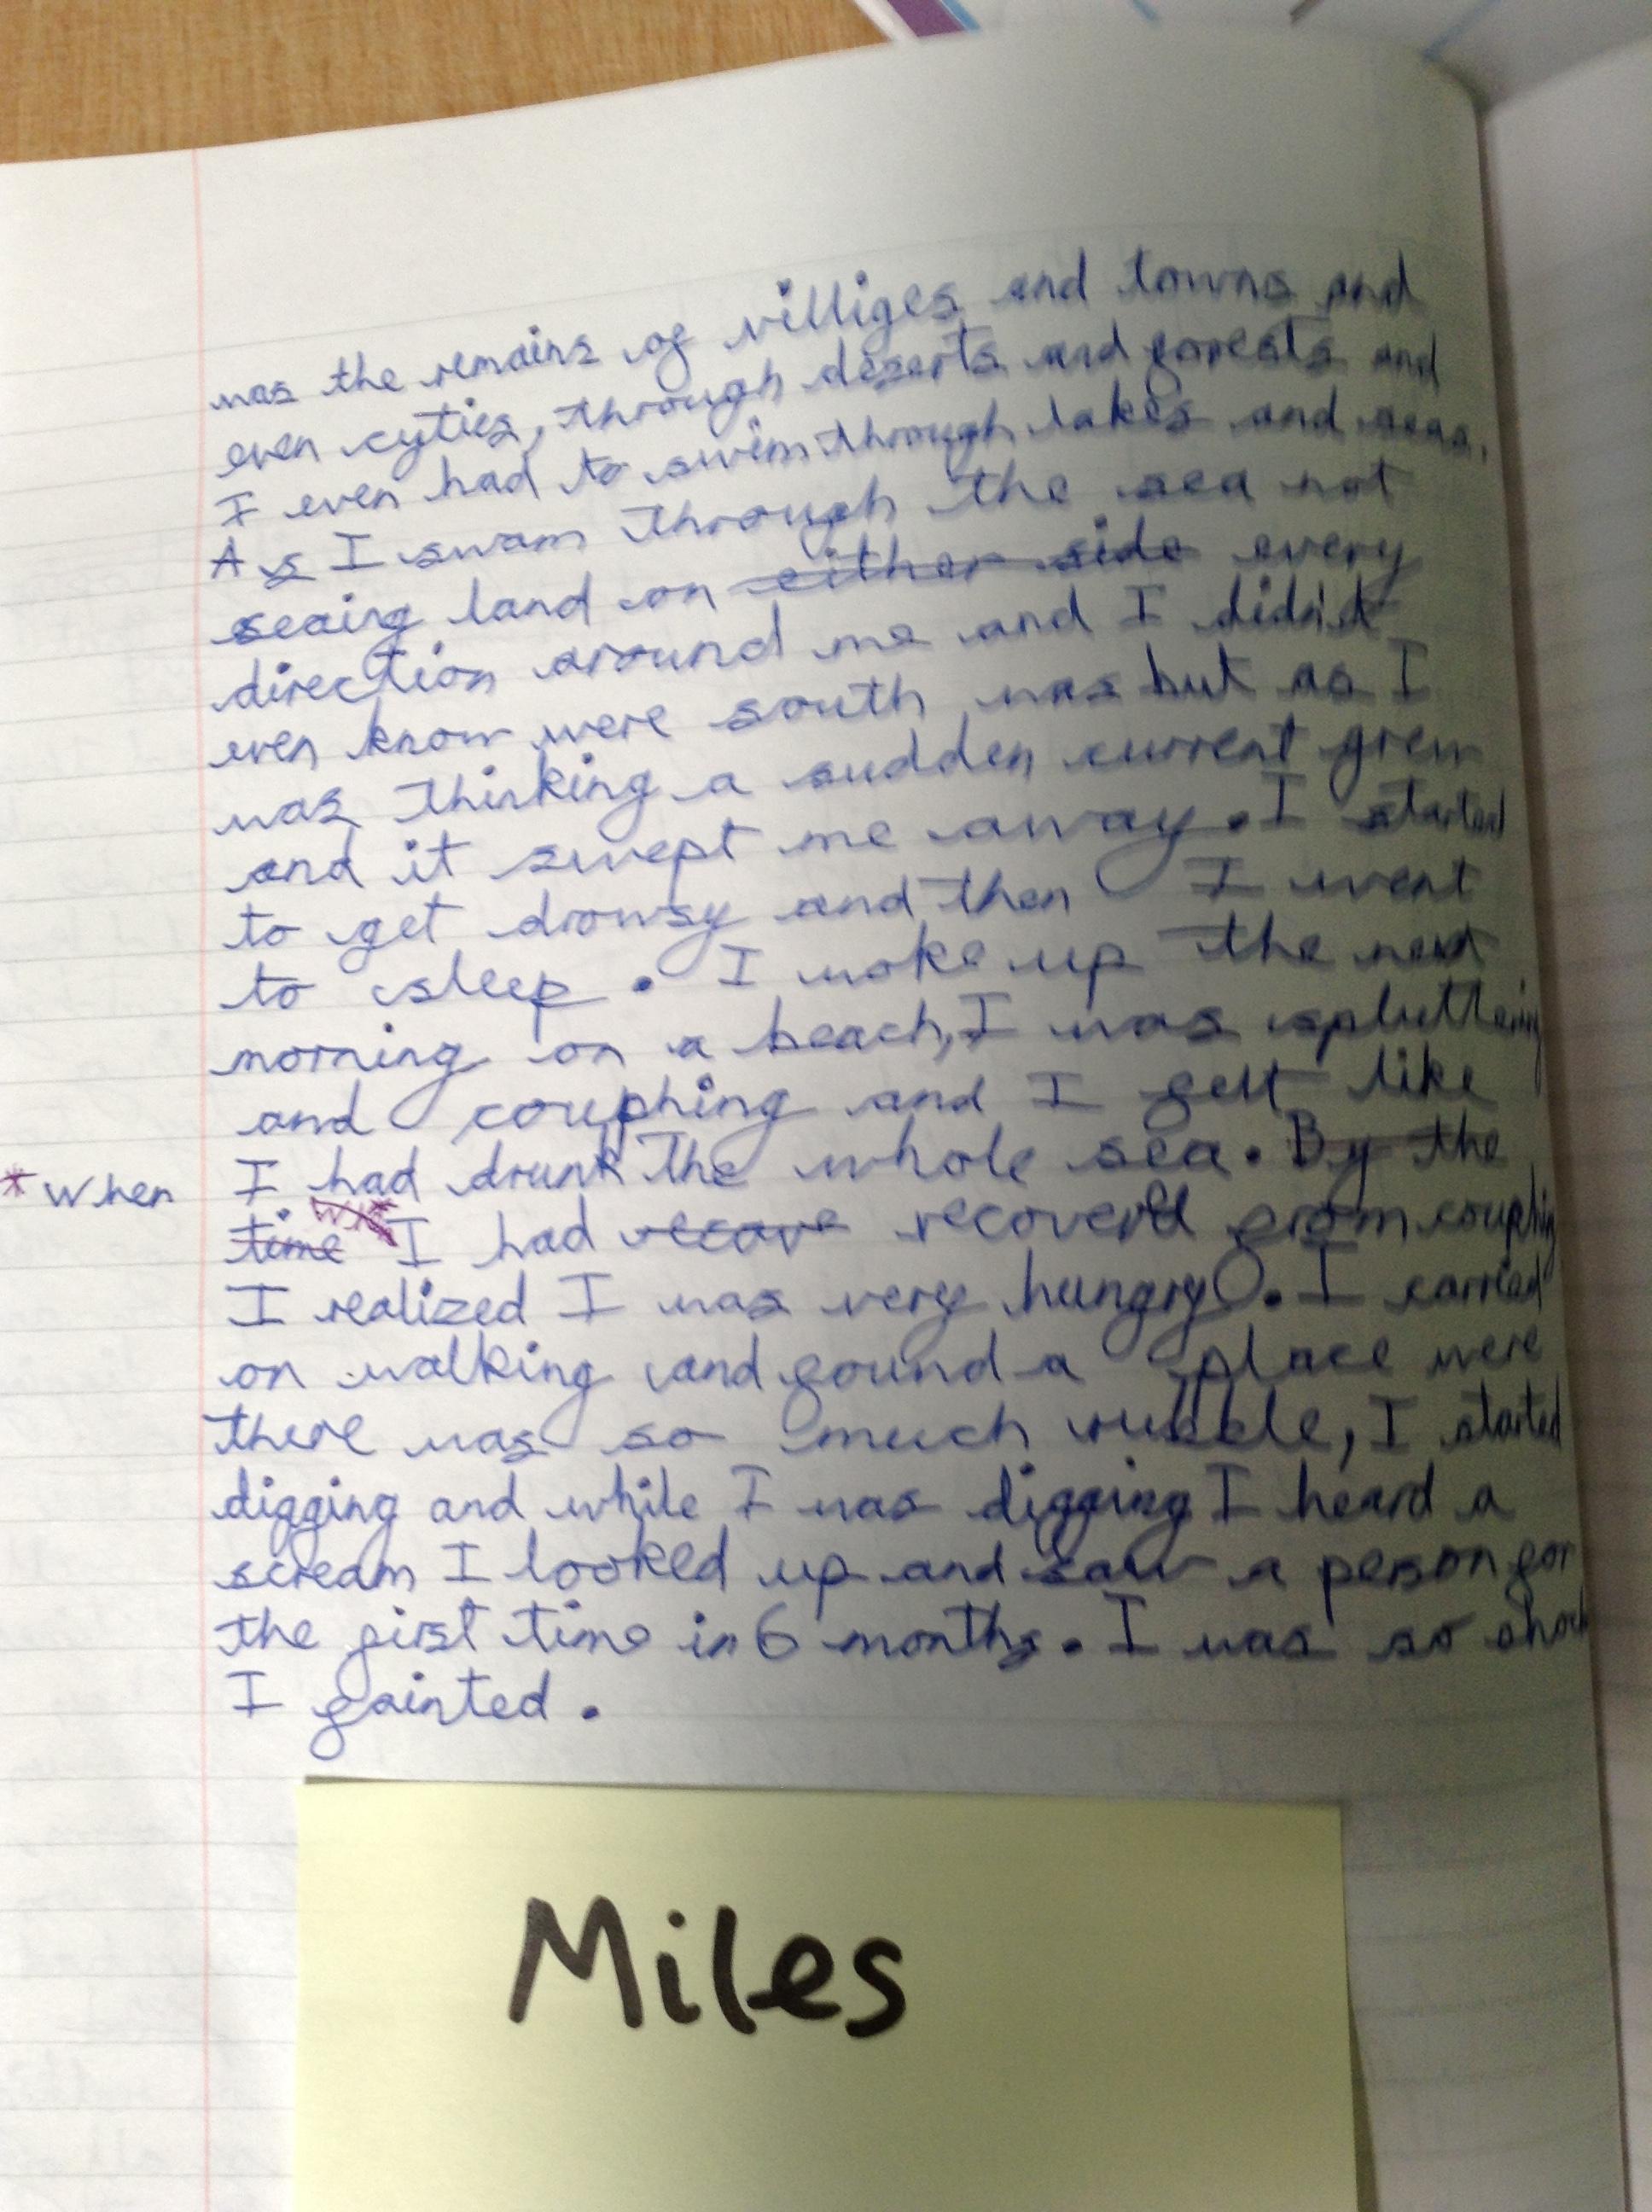 was the remains of villiges and towns and
even cyties, through deserts and forests and
I even had to swim through lakes and seas.
As I swam through the sea not
seaing land on either side every
direction around me and I didn't
even know were south was but as I
was thinking a sudden current grew
and it swept me away. I started
to get drowsy and then I went
to sleep. I woke up the next
morning on a beach, I was spluttering
and couphing and I felt like
I had drunk the whole sea. By the
*when
time I had recove recoverd from couphing
I realized I was very hungry. I carried
on walking and found a place were
there was so much rubble, I started
digging and while I was digging I heard a
scream I looked up and saw a person for
the first time in 6 months. I was so
I fainted.
Miles